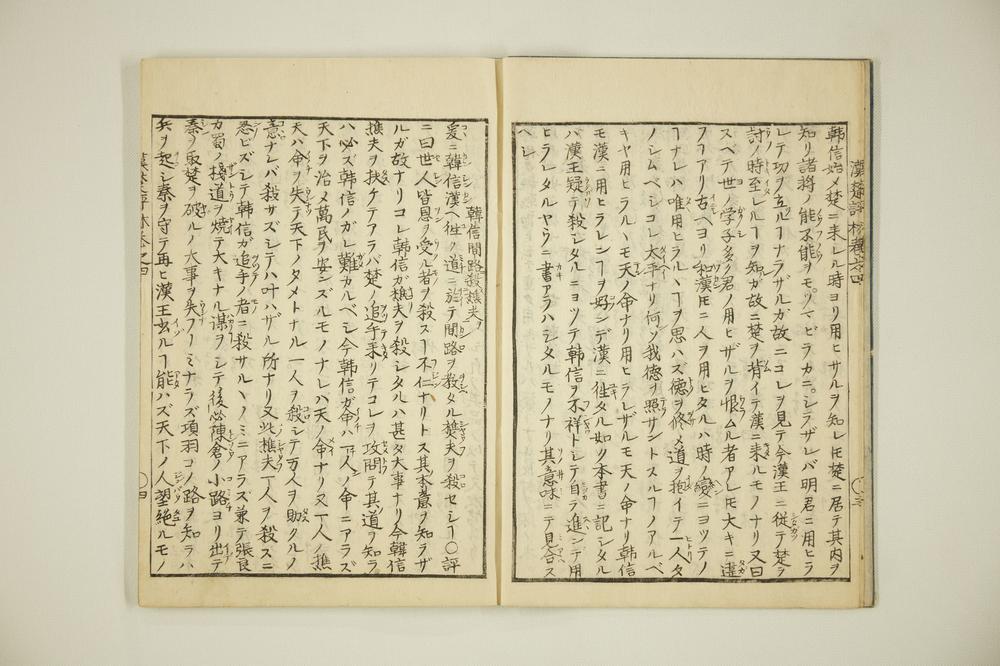 韓信始メ楚ニ来レル時ヨリ用ヒサルヲ知レ𪜈楚ニ居テ其内ヲ
知リ諸将ノ能不能ヲモツマビラカニシラザレバ明君ニ用ヒラ
レテ功ヲ立ルヿナラザルガ故ニコレヲ見テ今漢王ニ従テ楚ヲ
討ノ時至レルヿヲ知ガ故ニ楚ヲ背イテ漢ニ来ルモノナリ又曰
スベテ世ノ学子多ク君ノ用ヒザルヲ恨ムル者アレ𪜈大キニ違
フヿアリ古ヘヨリ和漢𪜈ニ人ヲ用ヒタルハ時ノ變ニヨツテノ
ヿナレハ唯用ヒラルヽヿヲ思ハズ德ヲ修メ道ヲ抱イテ一人タ
ノシムベシコレ太平ナリ何ソ我德ヲ照サントスルヿノアルベ
キヤ用ヒラルヽモ天ノ命ナリ用ヒラレザルモ天ノ命ナリ韓信
モ漢ニ用ヒラレンヿヲ好ンデ漢ニ徃タル如ク本書ニ記シタル
バ漢王疑テ殺シタルニヨツテ韓信ヲ不祥トシテ自ラ進ンデ用
ヒラレタルヤウニ書アラハシタルモノナリ其意味ニテ見合ス
ヘシ
漢楚評林巻之四
韓信間路殺樵夫
爰ニ韓信漢ヘ徃ク道ニ於テ間路ヲ教タル樵夫ヲ殺セシヿ○評
ニ曰世人皆恩ヲ受ル者ヲ殺スヿ不仁ナリトス其本意ヲ知ラザ
ルガ故ナリコレ韓信ガ樵夫ヲ殺シタルハ甚タ大事ナリ今韓信
樵夫ヲ扶ケテアラバ楚ノ追手来リテコレヲ攻問テ其道ヲ知ラ
ハ必ズ韓信ノガレ難カルベシ今韓信ガ命ハ一人ノ命ニアラズ
天下ヲ治メ萬民ヲ安ンズルモノナレハ天ノ命ナリ又一人ノ樵
夫ハ命ヲ失テ天下ノタメトナル一人ヲ殺シテ万人ヲ助クルノ
意ナレバ殺サズシテハ叶ハザル所ナリ又此樵夫一人ヲ殺スニ
忍ビズシテ韓信ガ追手ノ者ニ殺サルヽノミニアラズ兼テ張良
カ蜀ノ棧道ヲ焼テ大キナル謀ヲシテ後必陳倉ノ小路ヨリ出テ
秦ヲ取楚ヲ破ルノ大事ヲ失フヿミナラズ項羽コノ路ヲ知ラハ
兵ヲ起シ秦ヲ守テ再ヒ漢王玄ルヿ能ハズ天下ノ人望絶ルモノ